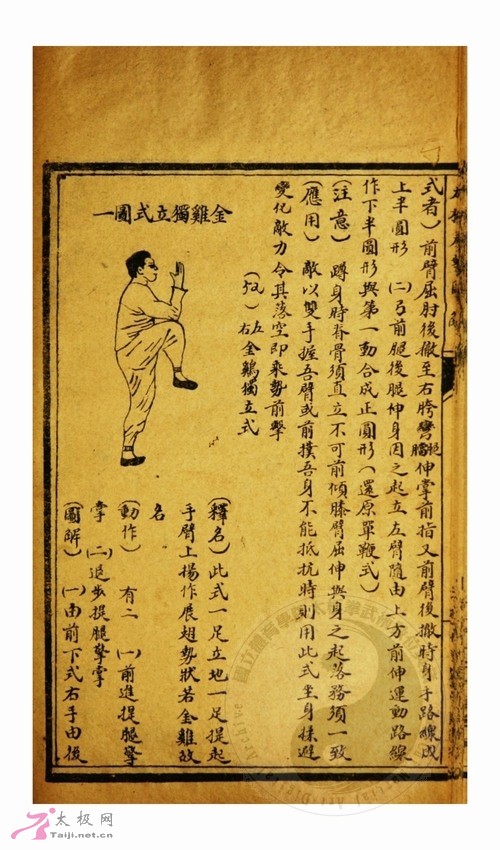 式者）前臂屈肘後撤至右胯彎腿伸掌前指又前臂後撤時身手路線成
上半圓形　（二）弓前腿後腿伸身因之起立左臂隨由上方前伸運動路線
作下半圓形與第一動合成正圓形（還原單鞭式）
（注意）　蹲身時脊骨須直立不可前傾膝臂屈伸與身之起落務須一致
（應用）　敵以雙手握吾臂或前撲吾身不能抵抗時則用此式坐身採避
變化敵力令其落空即乘勢前擊
左右金鷄獨立式
金雞獨立式圖一
（釋名）此式一足立地一足提起
手臂上揚作展翅勢狀若金雞故
名
（動作）　有二　（一）前進提腿擎
掌　（二）退步提腿擎掌
（圖解）　（一）由前下式右手由後
太极网
Taiji.net.cn